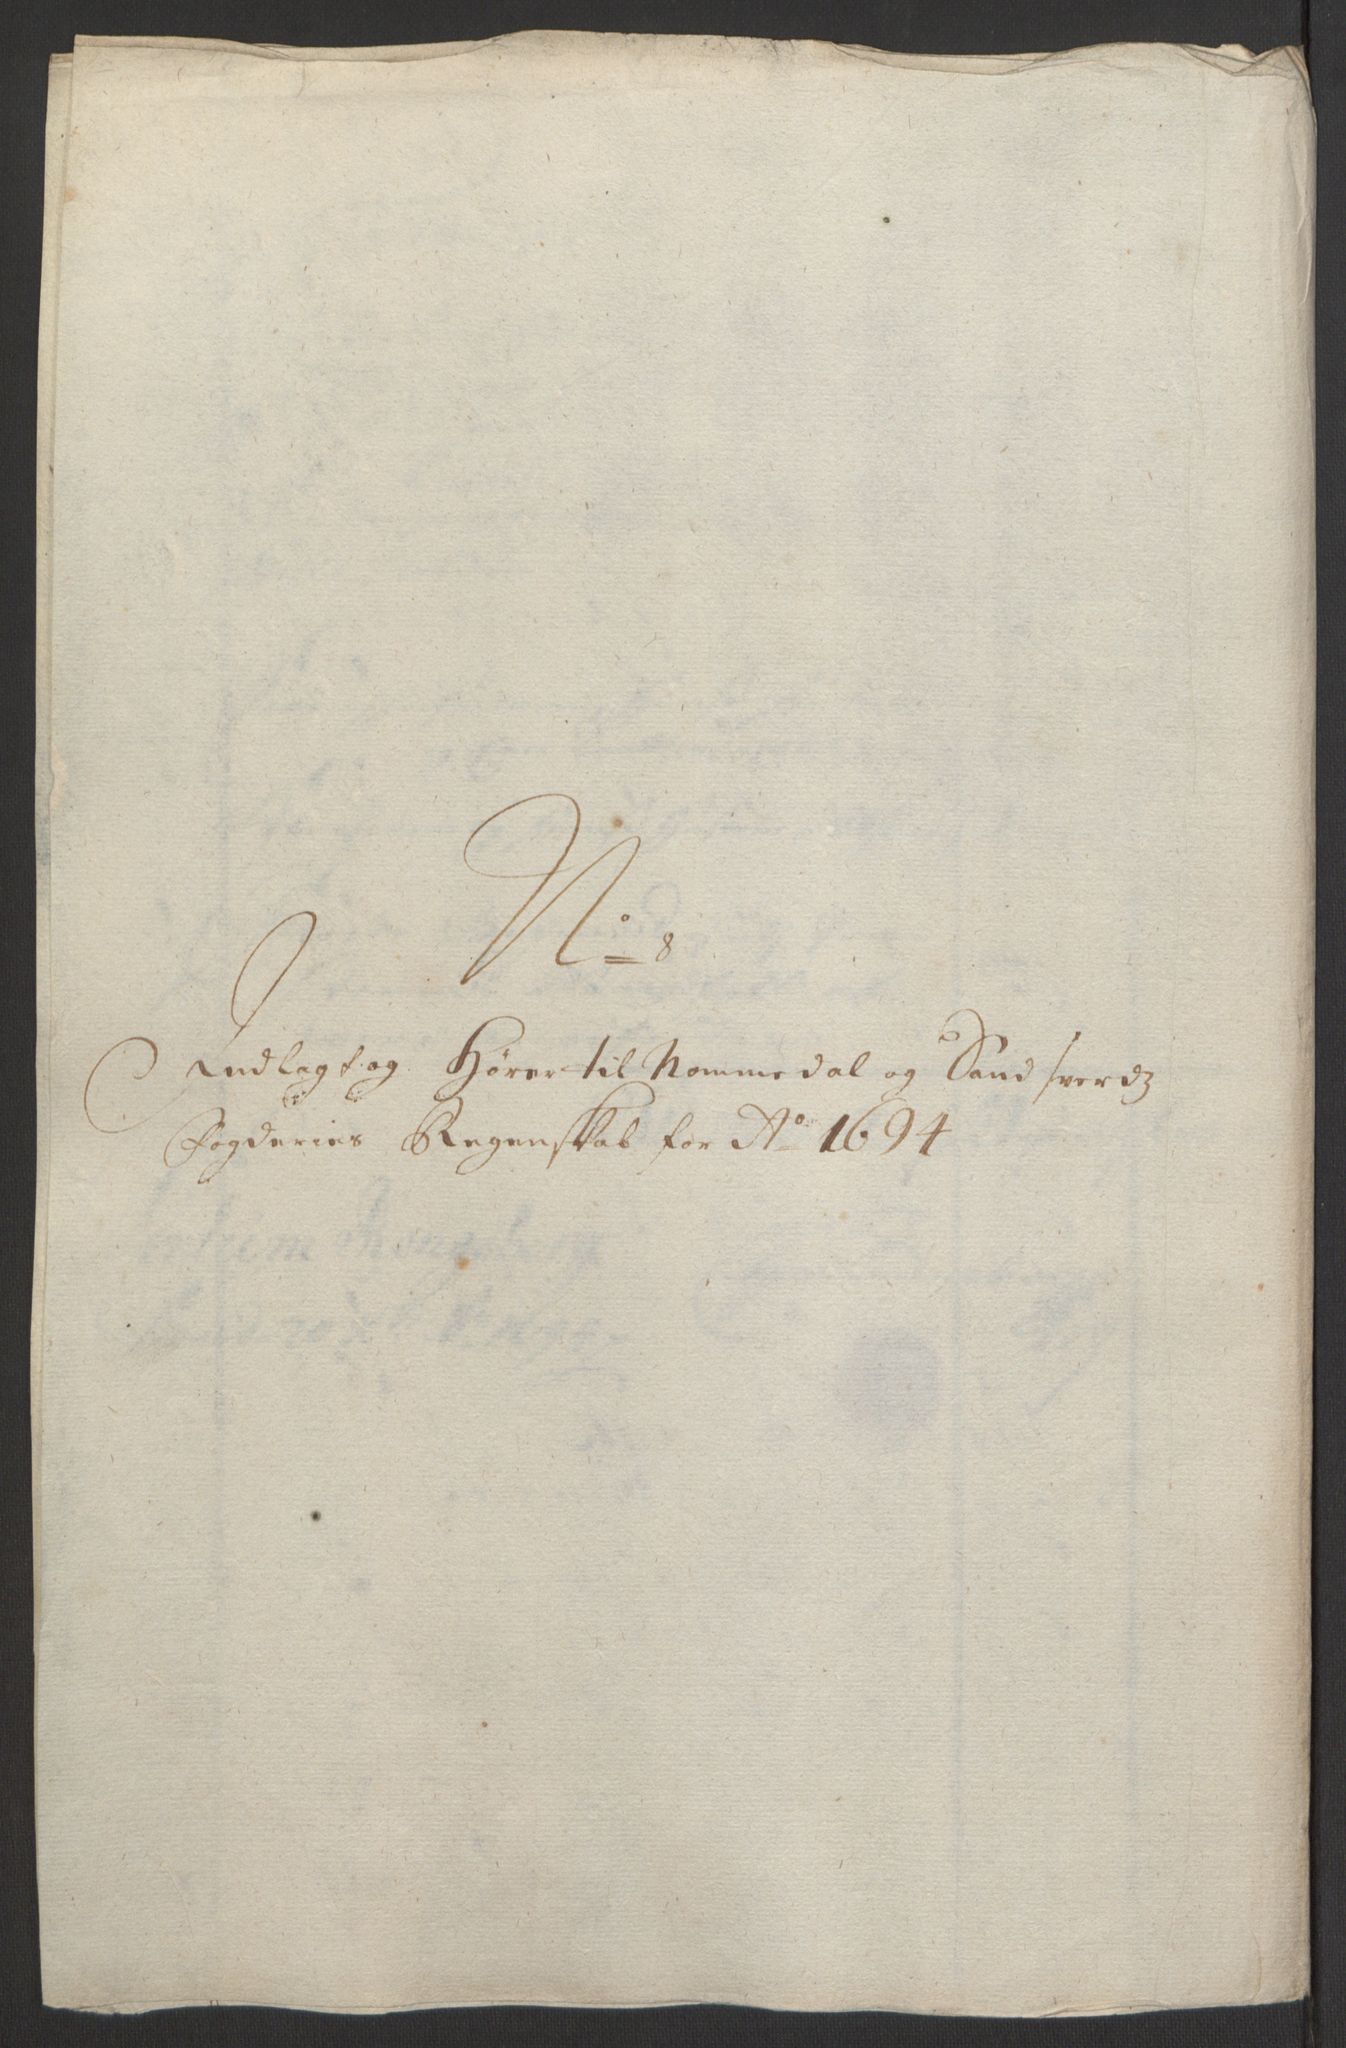 No 8
Indlagt og Hører til Nommedal og Sandsverdz
Fogderies Regenskab for Ao 1694